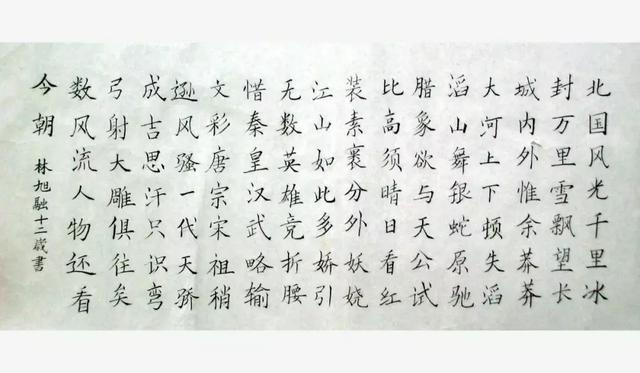 北国风光千里冰
封万里雪飘望长
城内外惟余莽莽
大河上下顿失滔
滔山舞银蛇原驰
腊象欲与天公试
比高须晴日看红
装素裹分外妖娆
江山如此多娇引
无数英雄竞折腰
惜秦皇汉武略输
文彩唐宗宋祖稍
逊风骚一代天骄
成吉思汗只识弯
弓射大雕俱往矣
数风流人物还看
今朝 林旭融十二歲書